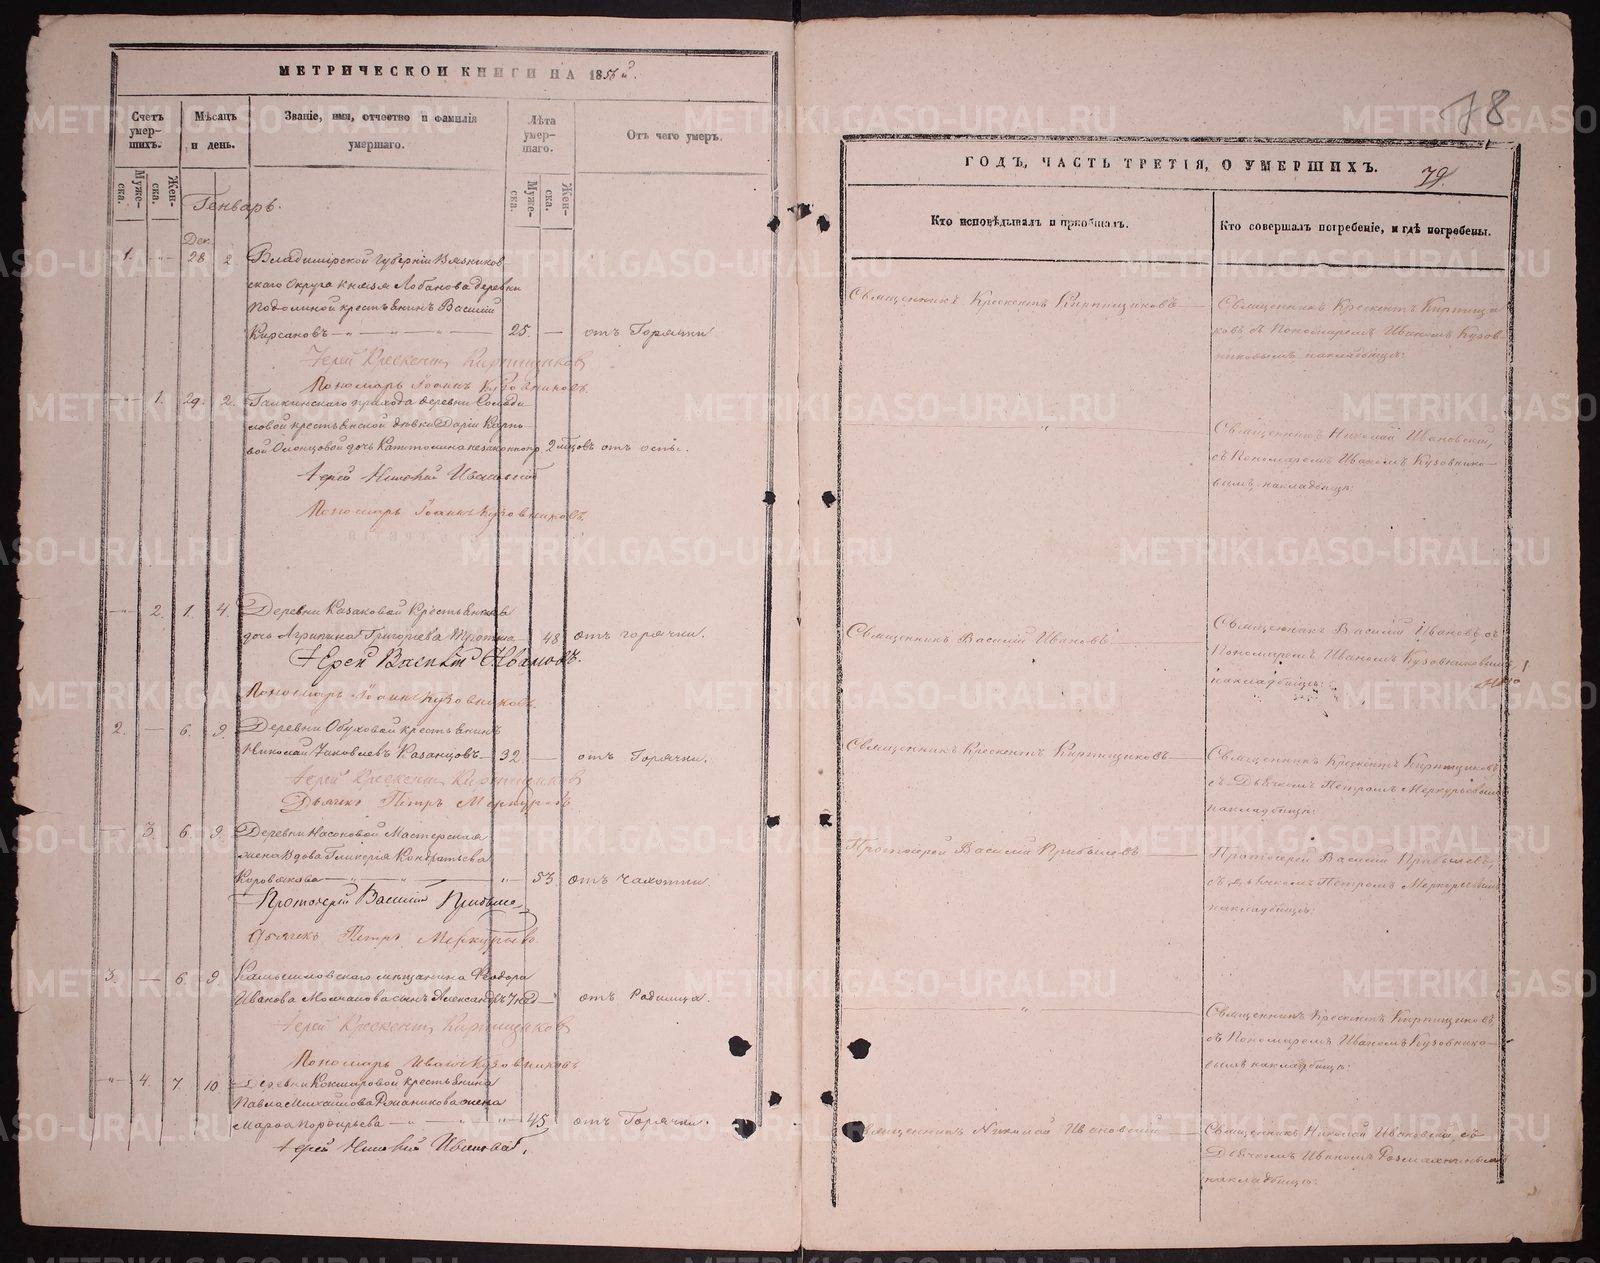 МЕТРИЧЕСКОЙ КНИГИ НА 1856й.
Счетъ умер- шихъ.
Мѣсяцъ и день.
Званіе, имя, отчество и фамилія умершаго.
Лѣта умер- шаго.
Отъ чего умеръ.
Муже- ска.
Жен- ска.
Муже- ска.
Жен- ска.
Генварь.
Дек.
1. 28 2 Владимірской губерніи Вязников-
скаго Округа князя Лобанова деревни
Подолиной крестьянинъ Василій
Кирсановъ 25. — отъ Горячки
Іерей Крескентъ Кирпищиковъ
Пономарь Іоаннъ Кузовниковъ
1. 29. 2. Галкинскаго прихода деревни
ловой крестьянской дѣвки Дарьи Карпо-
вой дочь незаконнор. 2 мѣсцовъ отъ оспы.
Іерей Николай Ивановскій
Пономарь Іоаннъ Кузовниковъ.
2. 1. 4. Деревни Казаковой Крестьянина
дочь Агрипина Григорьева 48 отъ горячки.
Іерей Василій Ивановъ.
Пономарь Іоаннъ Кузовниковъ.
2. — 6. 9. Деревни Обуховой крестьянинъ
Николай Яковлевъ Казанцовъ — 32 — отъ Горячки.
Іерей Крескентъ Кирпищиковъ
Дьячекъ Петръ Меркурьевъ
3. 6. 9. Деревни Насоновой Мастерская
жена вдова Гликерія Кондратьева
Коровякова 53. отъ Чахотки
Протоіерей Василій Прибылев
Дьячекъ Петръ Меркурьевъ
3. — 6. 9 Камышловскаго мѣщанина Феодора
Иванова Молчанова сынъ Александръ 7 нед — отъ Родимца.
Іерей Крескентъ Кирпищиковъ
Пономарь Иванъ Кузовниковъ
4. 7. 10 Деревни Кокшаровой крестьянина
Павла Михайлова Ржаникова жена
Марфа Порфирьева 45. отъ Горячки.
Іерей Николай Ивановскій.
78
ГОДЪ, ЧАСТЬ ТРЕТІЯ, О УМЕРШИХЪ.
79.
Кто исповѣдывалъ и пріобщалъ.
Кто совершалъ погребеніе, и гдѣ погребены.
Священникъ Крескентъ Кирпищиковъ
Священникъ Крескентъ Кирпищи-
ковъ съ Пономаремъ Иваномъ Кузов-
никовымъ накладбищѣ.
Священникъ Николай Ивановскій,
съ Пономаремъ Иваномъ Кузовнико-
вымъ, накладбищѣ.
Священникъ Василій Ивановъ
Священникъ Василій Ивановъ съ
Пономаремъ Иваномъ Кузовниковымъ
накладбищѣ.
Священникъ Крескентъ Кирпищиковъ
Священникъ Крескентъ Кирпищиковъ
съ Дьячкомъ Петромъ Меркурьевымъ
накладбищѣ.
Протоіерей Василій Прибылевъ
Протоіерей Василій Прибылевъ,
съ дьячкомъ Петромъ Меркурьевымъ
накладбищѣ.
Священникъ Крескентъ Кирпищиковъ
съ Пономаремъ Иваномъ Кузовнико-
вымъ накладбищѣ.
Священникъ Николай Ивановскій
Священникъ Николай Ивановскій, съ
Дьячкомъ Иваномъ
накладбищѣ.
METRIKI.GASO-URAL.RU